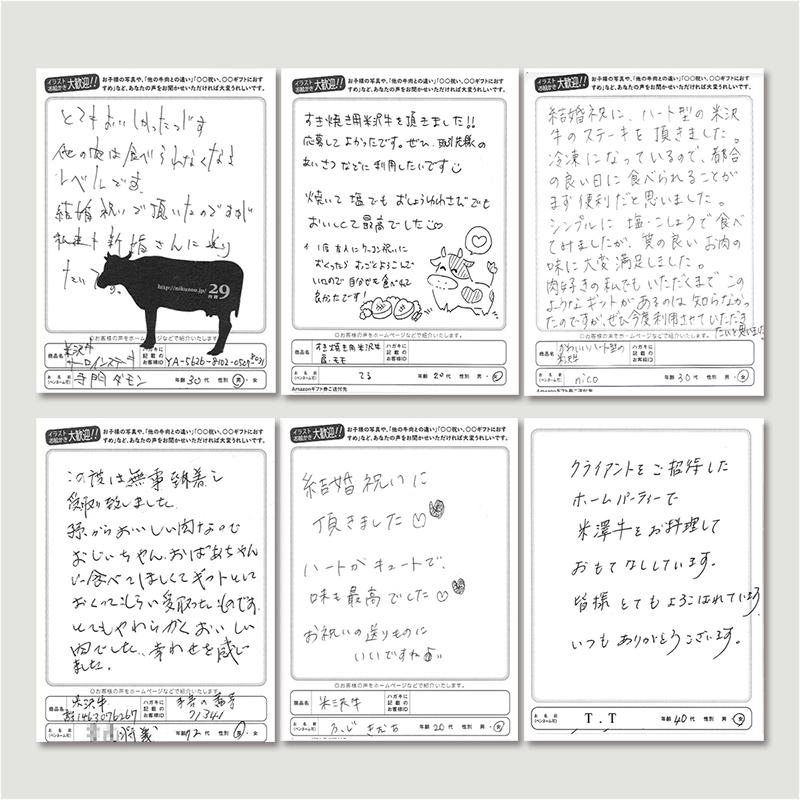 イラスト お絵かき 大歓迎!! お子様の写真や、「他の牛肉との違い」「〇〇祝い、〇〇ギフトにおすすめ」など、あなたの声をお聞かせいただければ大変うれしいです。
とてもおいしかったっです
他の肉は食べられなくなる
レベルです。
結婚祝いで頂いたのですが
私達も新婚さんに送り
たいです。
http://nikuzoo.jp/ 29
◎お客様の声をホームページなどで紹介いたします。
商品名 米沢牛 サーロインステーキ ハガキに記載のお客様ID YA-5626-8102-0529
お名前(ペンネーム可) 寺門ダモン 年齢 30代 性別 男・女
イラスト お絵かき 大歓迎!! お子様の写真や、「他の牛肉との違い」「〇〇祝い、〇〇ギフトにおすすめ」など、あなたの声をお聞かせいただければ大変うれしいです。
すき焼き用米沢牛を頂きました!!
応募してよかったです。ぜひ、取引先様の
あいさつなどに利用したいです
焼いて塩でもおしょうゆわさびでも
おいしくて最高でした
1度友人にケッコン祝いに
おくったらすっごとよろこんで
いたので自分でも食べれて
良かったです!
◎お客様の声をホームページなどで紹介いたします。
商品名 すき焼き用米沢牛 肩・モモ ハガキに記載のお客様ID
お名前(ペンネーム可) てる 年齢 20代 性別 男・女
Amazonギフト券ご送付先
イラスト お絵かき 大歓迎!! お子様の写真や、「他の牛肉との違い」「〇〇祝い、〇〇ギフトにおすすめ」など、あなたの声をお聞かせいただければ大変うれしいです。
結婚祝に、ハート型の米沢
牛のステーキを頂きました。
冷凍になっているので、都合
の良い日に食べられることが
まず便利だと思いました。
シンプルに塩・こしょうで食べ
てみましたが、質の良いお肉の
味に大変満足しました。
肉好きの私でもいただくまでこの
ようなギフトがあるのは知らなかっ
たのですが、ぜひ今度利用させていただき
たいと思いました。
◎お客様の声をホームページなどで紹介いたします。
商品名 かわいいハート型の米沢牛 ハガキに記載のお客様ID
お名前(ペンネーム可) nico 年齢 30代 性別 男・女
Amazonギフト券ご送付先
イラスト お絵かき 大歓迎!! お子様の写真や、「他の牛肉との違い」「〇〇祝い、〇〇ギフトにおすすめ」など、あなたの声をお聞かせいただければ大変うれしいです。
この度は無事到着し
受取り致しました。
孫からおいしい肉なので
おじいちゃん、おばあちゃん
に食べてほしくてギフトとして
おくってもらい受取ったものです。
とてもやわらかくおいしい
肉でした、幸わせを感じ
ました。
◎お客様の声をホームページなどで紹介いたします。
商品名 米沢牛 1463076267 ハガキに記載のお客様ID 21341
お名前(ペンネーム可) 年齢 72代 性別 男・女
イラスト お絵かき 大歓迎!! お子様の写真や、「他の牛肉との違い」「〇〇祝い、〇〇ギフトにおすすめ」など、あなたの声をお聞かせいただければ大変うれしいです。
結婚祝いに
頂きました
ハートがキュートで、
味も最高でした
お祝いの送りものに
いいですね
◎お客様の声をホームページなどで紹介いたします。
商品名 米沢牛 ハガキに記載のお客様ID
お名前(ペンネーム可) 年齢 20代 性別 男・女
Amazonギフト券ご送付先
クライアントをご招待した
ホームパーティーで
米澤牛をお料理して
おもてなししています。
皆様とてもよろこばれています
いつもありがとうございます。
お名前(ペンネーム可) T.T 年齢 40代 性別 男・女